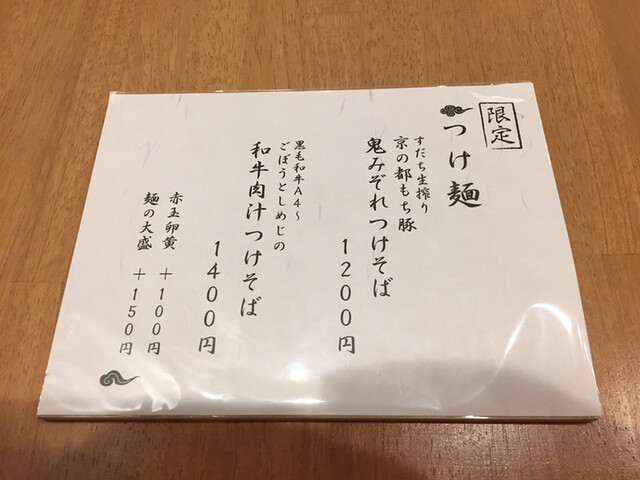 限定
つけ麺
すだち生搾り
京の都もち豚
鬼みぞれつけそば
1200円
黒毛和牛A4～
ごぼうとしめじの
和牛肉汁つけそば
1400円
赤玉卵黄 +100円
麺の大盛 +150円